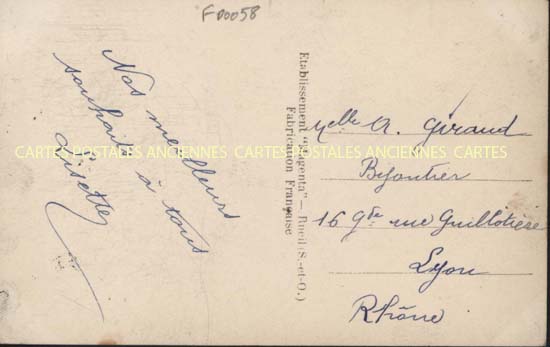 FD0058
Nos meilleurs
souhaits à tous
Lisette
Etablissement "Magenta" — Rueil (S.-et-O.)
Fabrication Française
Melle A. Giraud
Bijoutier
16 Gde rue Guillotière
Lyon
Rhône
CARTES POSTALES ANCIENNES CARTES POSTALES ANCIENNES CARTES